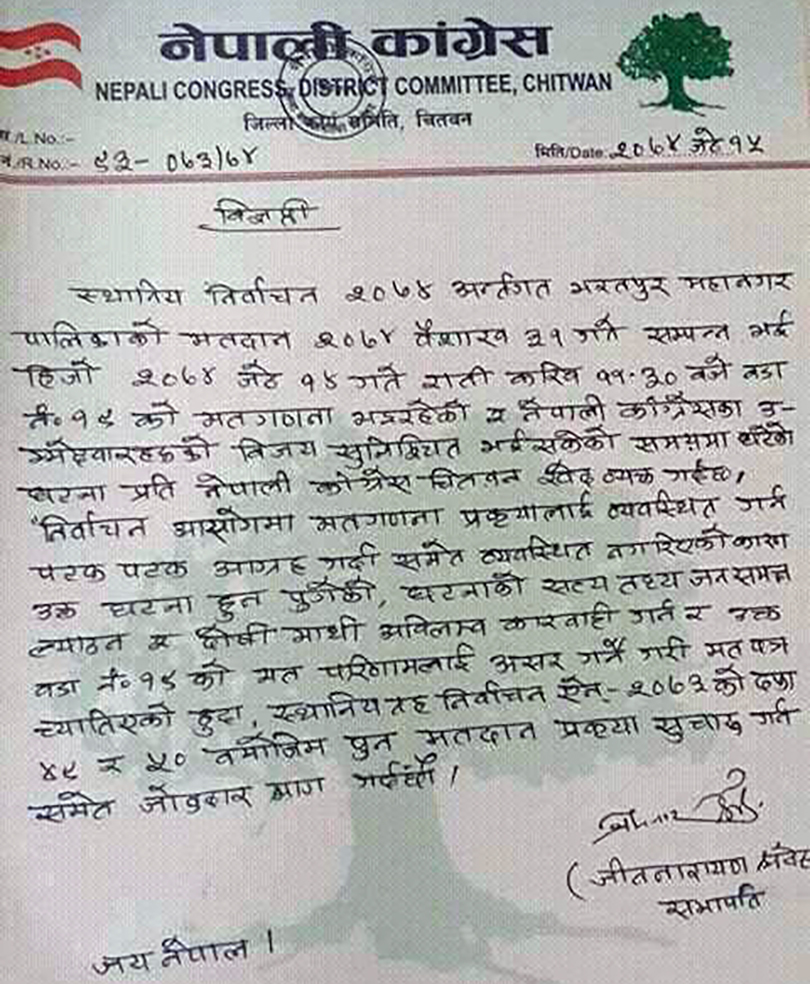 नेपाली कांग्रेस
NEPALI CONGRESS, DISTRICT COMMITTEE, CHITWAN
जिल्ला कार्य समिति, चितवन
/L.No.:-
/R.No.:- ९३- ०७३/७४
मिति/Date: २०७४ जेठ १५
विज्ञप्ती
स्थानिय निर्वाचन २०७४ अर्न्तगत भरतपुर महानगर
पालिकाको मतदान २०७४ वैशाख ३१ गते सम्पन्न भई
हिजो २०७४ जेठ १४ गते राती करिव ११.३० बजे वडा
नं. १९ को मतगणना भइरहेको र नेपाली काँग्रेसका उ-
म्मेद्वारहरुको विजय सुनिश्चित भईसकेको समयमा घटेको
घटना प्रति नेपाली काँग्रेस चितवन खेद व्यक्त गर्दछ,
"निर्वाचन आयोगमा मतगणना प्रकृयालाई व्यवस्थित गर्न
पटक पटक आग्रह गर्दा समेत व्यवस्थित नगरिएको कारण
उक्त घटना हुन पुगेको, घटनाको सत्य तथ्य जनसमक्ष
ल्याउन र दोषी माथी अविलम्व कारवाही गर्न र उक्त
वडा नं. १९ को मत परिणामलाई असर गर्ने गरी मत पत्र
च्यातिएको हुदा, स्थानिय तह निर्वाचन ऐन्-२०७३ को दफा
४९ र ५० वमोजिम पुन मतदान प्रकृया सुचारु गर्न
समेत जोडदार माग गर्दछौं।
(जीतनारायण श्रेष्ठ
सभापति
जय नेपाल।